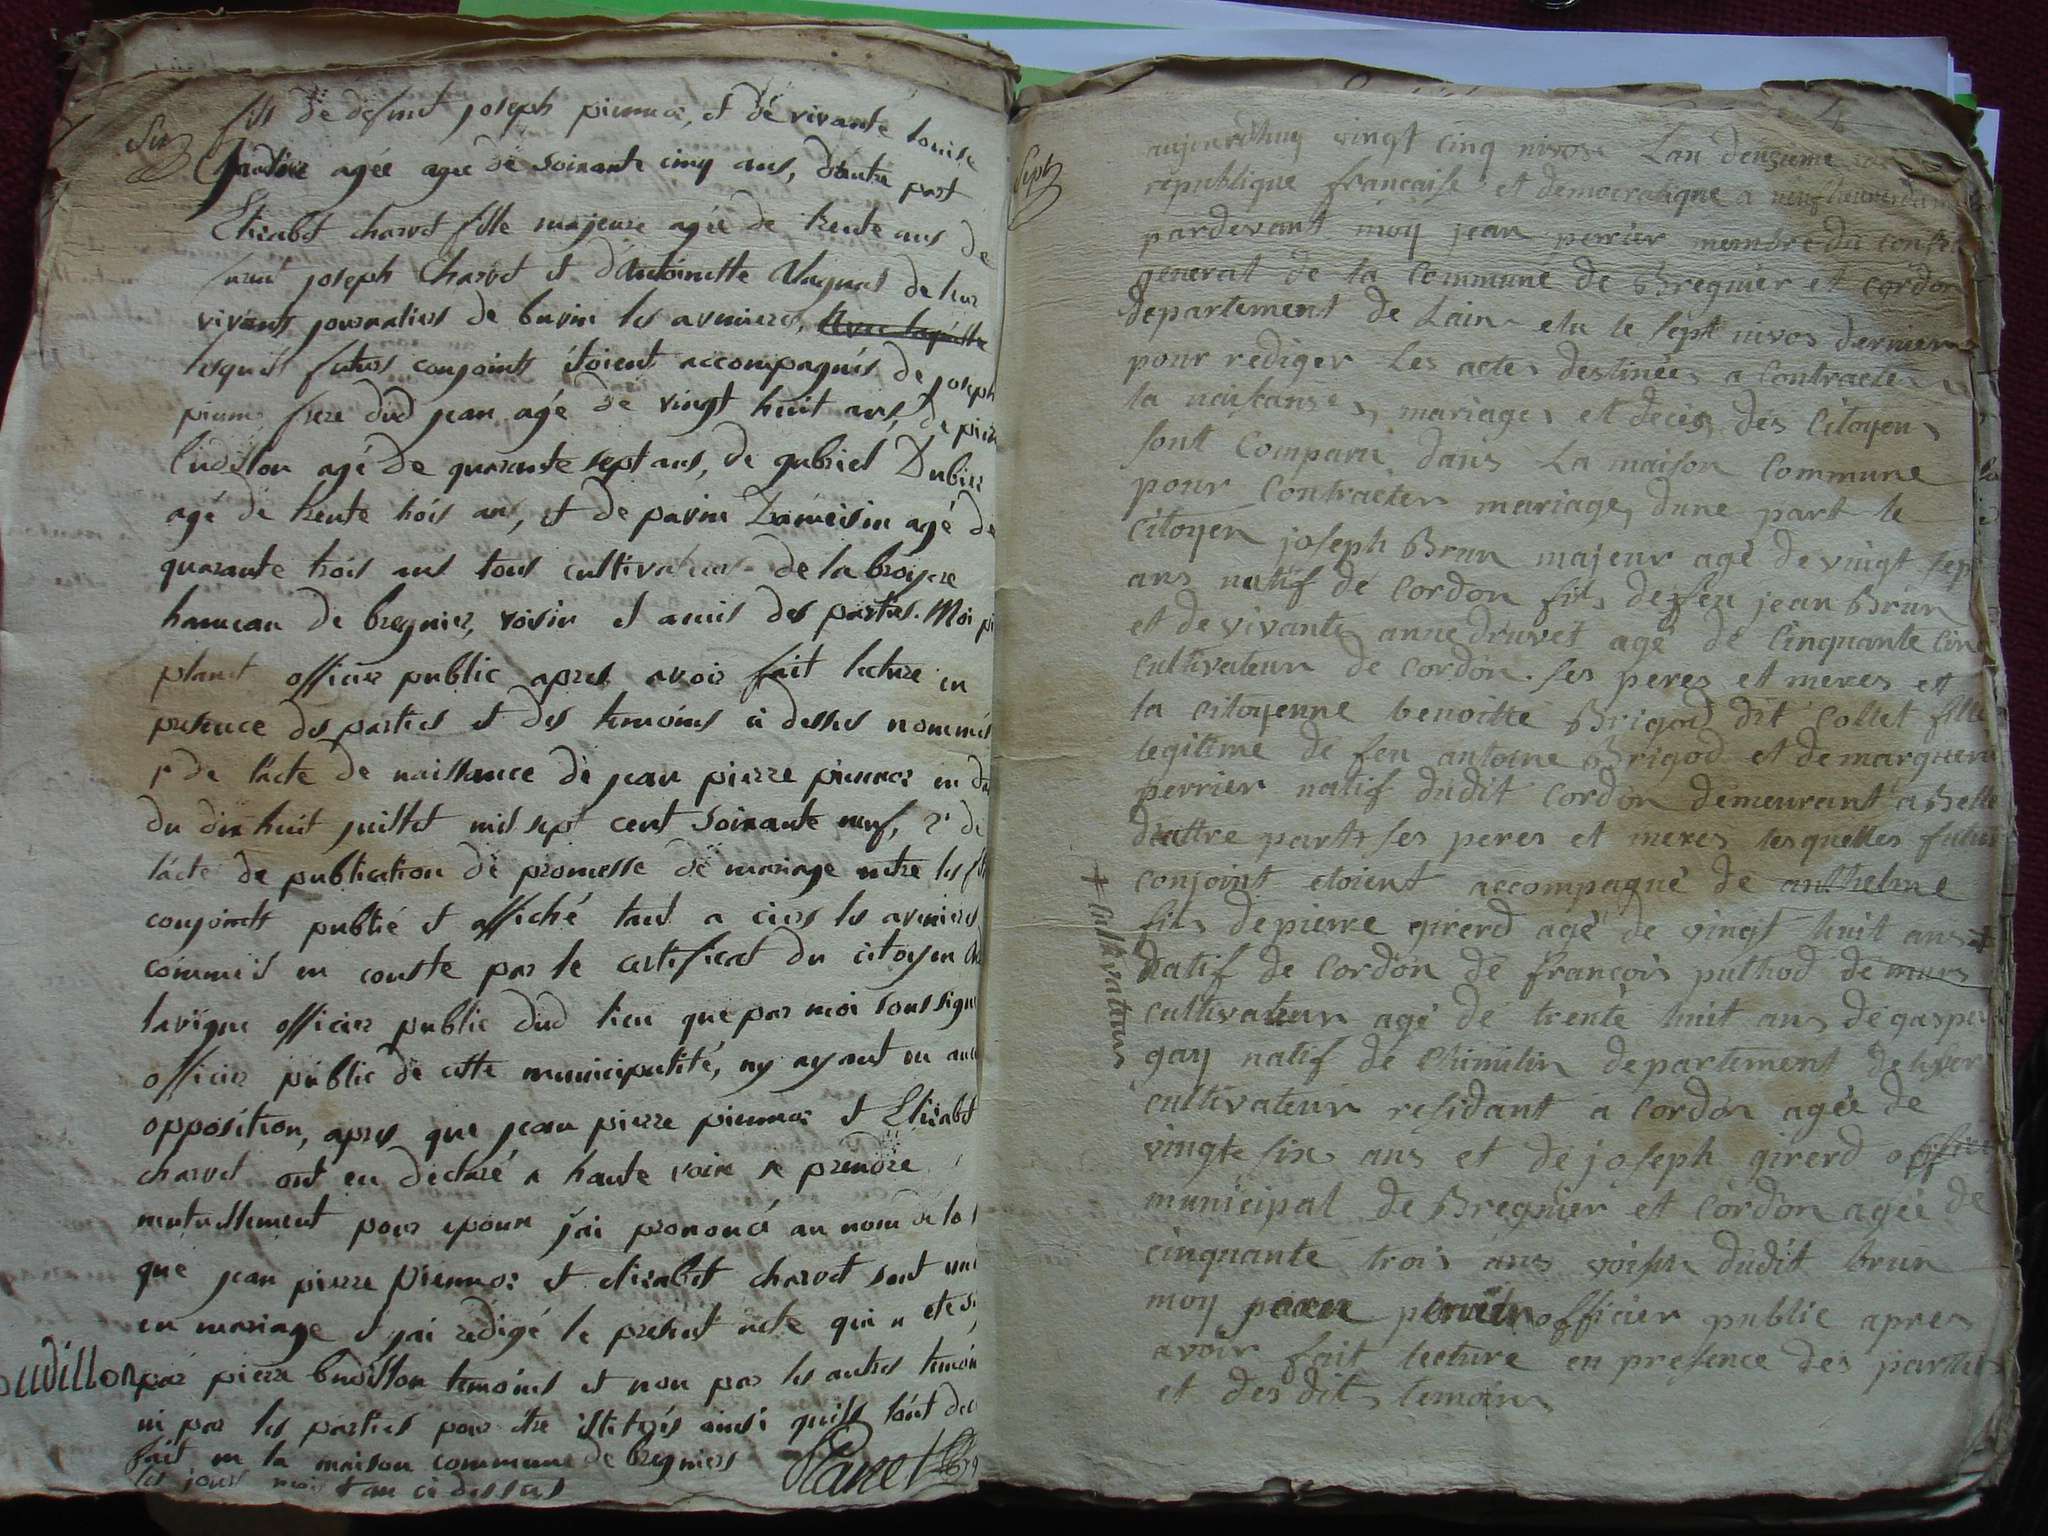 Six
fils de defunt joseph pieumor, et de vivante louise
agée agee de soixante cinq ans, d'autre part
Elizabet charvet fille majeure agée de trente ans de
joseph Charvet et d'Antoinette de leur
vivant journaliers de les avenieres,
lesquels futurs conjoints étoient accompagnés de joseph
frere dud jean agé de vingt huit ans, de pierre
budillon agé de quarante sept ans, de gabriel Dubier
agé de trente trois ans, et de agé de
quarante trois ans tous cultivateurs de la broyere
hameau de bregnier, voisin et amis des parties. Moi
planet officier public apres avoir fait lecture en
presence des parties et des temoins ci dessus nommés
1° de l'acte de naissance de jean pierre pieumor en
du dix huit juillet mil sept cent soixante neuf, 2° de
l'acte de publication de promesse de mariage entre les
conjoints publié et affiché tant a les avenieres
comme en conste par le certificat du citoyen
lavigne officier public dud lieu que par moi soussigné
officier public de cette municipalité, ny ayant eu
opposition, apres que jean pierre pieumor et Elizabet
charvet ont eu declaré a haute voix se prendre
mutuellement pour epoux j'ai prononcé au nom de la
que jean pierre pieumor et elizabet charvet sont unis
en mariage et j'ai redigé le present acte qui a ete
par pierre budillon temoins et non par les autres temoins
budillon
ni par les parties pour etre illiterés ainsi quils l'ont
fait en la maison commune de bregnier
les jours mois et an ci dessus
Planet
Sept
aujourdhuy vingt cinq nivose Lan deuxieme
republique francaise et democratique a neuf heures
pardevant moy jean perrier membre du conseil
general de la commune de Bregnier et cordon
departement de Lain elu le sept nivos dernier
pour rediger les actes destinées a contracter
la naissanses, mariages et deces des Citoyens
sont Comparu dans La maison Commune
pour Contracter mariage, dune part le
citoyen joseph Brun majeur agé de vingt sept
ans natif de Cordon fils de feu jean Brun
et de vivante anne druvet agé de Cinquante cinq
cultivateur de Cordon. ses peres et meres et
la citoyenne benoitte Brigod dit Collet fille
legitime de feu antoine Brigod et de marguerite
perrier natif dudit Cordon demeurant a Belle
dautre parts ses peres et meres lesquelles futur
conjoint etoient accompagné de anthelme
fils de pierre girerd agé de vingt huit ans +
+ Cultivateur
natif de Cordon de françois puthod de murs
cultivateur agé de trente huit ans de gaspard
gay natif de Chimilin departement de liser
cultivateur residant a Cordon agée de
vingte six ans et de joseph girerd officier
municipal de Bregnier et Cordon agée de
cinquante trois ans voisin dudit brun
moy officier public apres
avoir fait lecture en presence des parties
et des dits temoins